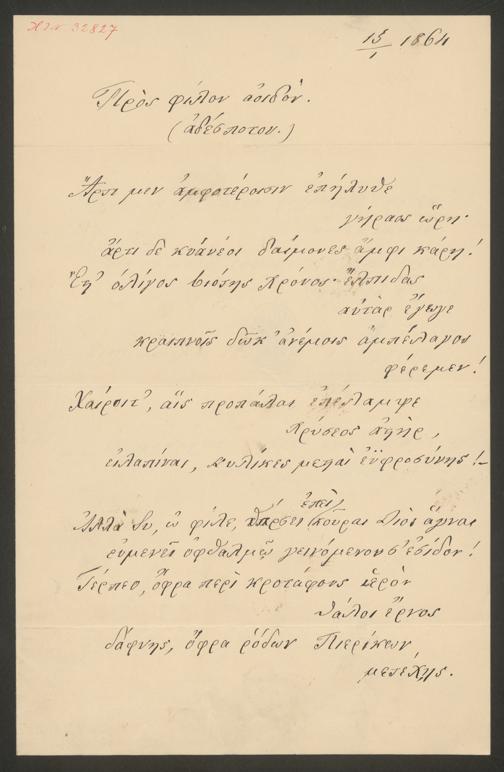 H.I.N. 32827
15/1 1864
Πρὸς φίλον ἀοιδὸν.
(ἀδέσποτον.)
Ἄρτι μεν ἀμφοτέροισιν ἐπήλυθε
γήραος ὥρη·
ἄρτι δε κυάνεοι δαίμονες ἄμφι κάρη!
Ἔτ' ὀλίγος βιότης χρόνος· ἔλπιδας
αὐτὰρ ἔγωγε
κραιπνοῖς δῶκ' ἀνέμοις ἀμπέλαγος
φέρεμεν!
Χαίροιτ', αἷς προπάλαι ἐπέλαμψε
χρύσεος ἀτὴρ,
εἰλαπίναι, κυλίκες μεταὶ ἐϋφροσύνης! –
Ἀλλὰ συ, ὦ φίλε, θάρσει ἐπεὶ κοῦραι Διὸς ἅγναι
εὐμενεῖ ὀφθαλμῷ γεινόμενον σ' ἐσίδον!
Τέρπεο, ὄφρα περὶ κροτάφους ἱερὸν
θάλοι ἔρνος
δάφνης, ὄφρα ῥόδων Πιερικων
μετέχῃς.